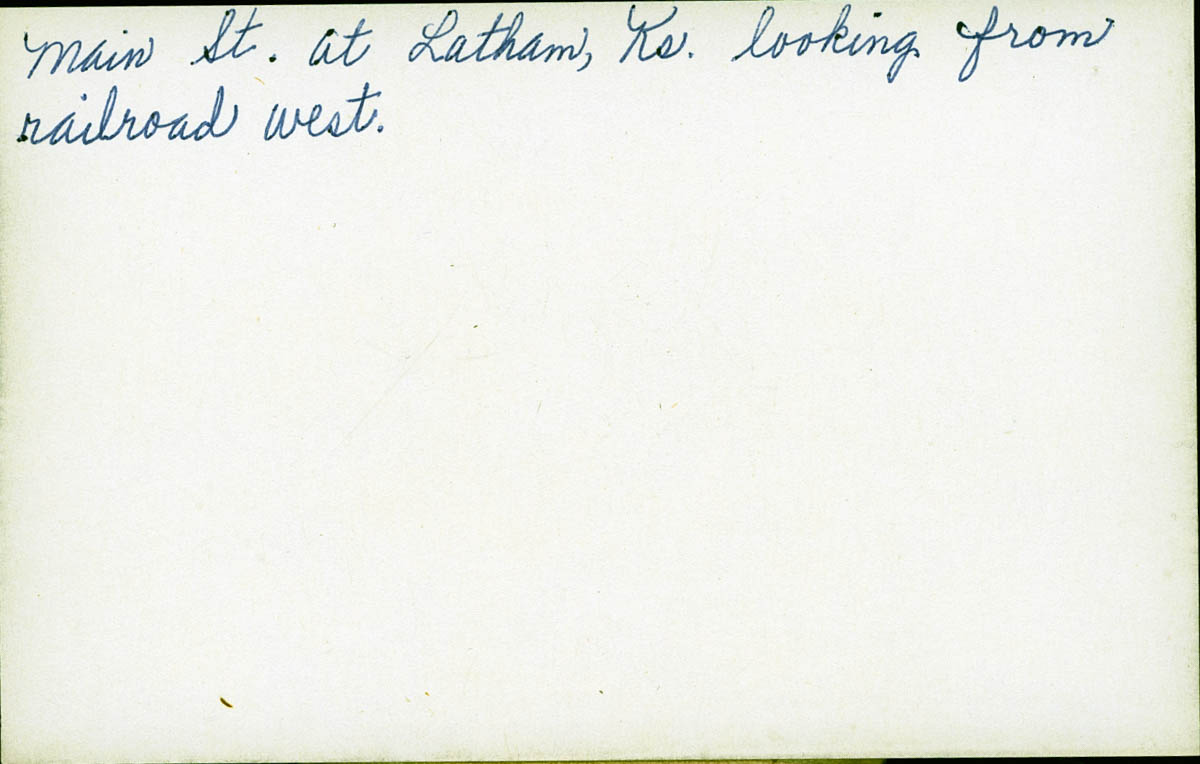 Main St. at Latham, Ks. looking from
railroad west.